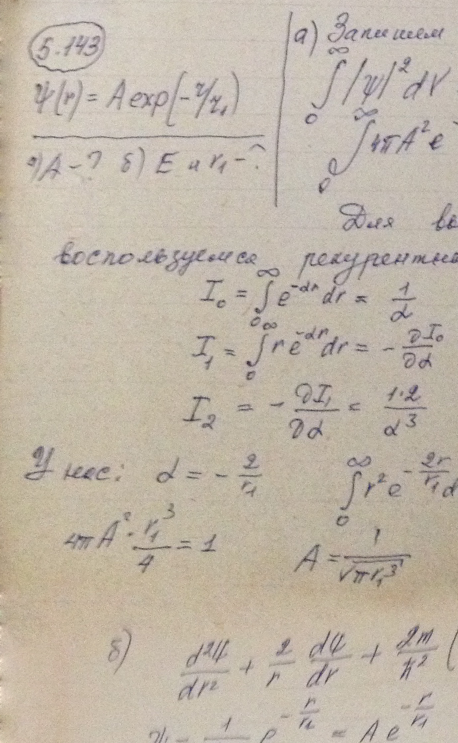 5.143
ψ(r) = A exp(-r/r₁)
а) A - ? б) E и r₁ - ?
а) Запишем
∫₀^∞ |ψ|² dV
∫₀^∞ 4πA² e
Для во
воспользуемся рекурентн
I₀ = ∫₀^∞ e^(-αr) dr = 1/α
I₁ = ∫₀^∞ r e^(-αr) dr = - ∂I₀/∂α
I₂ = - ∂I₁/∂α = 1·2/α³
У нас: α = - 2/r₁ ∫₀^∞ r² e^(-2r/r₁) d
4πA² · r₁³/4 = 1 A = 1/√(πr₁³)
б) d²ψ/dr² + 2/r dψ/dr + 2m/ħ² (
e^(-r/r₁) = A e^(-r/r₁)